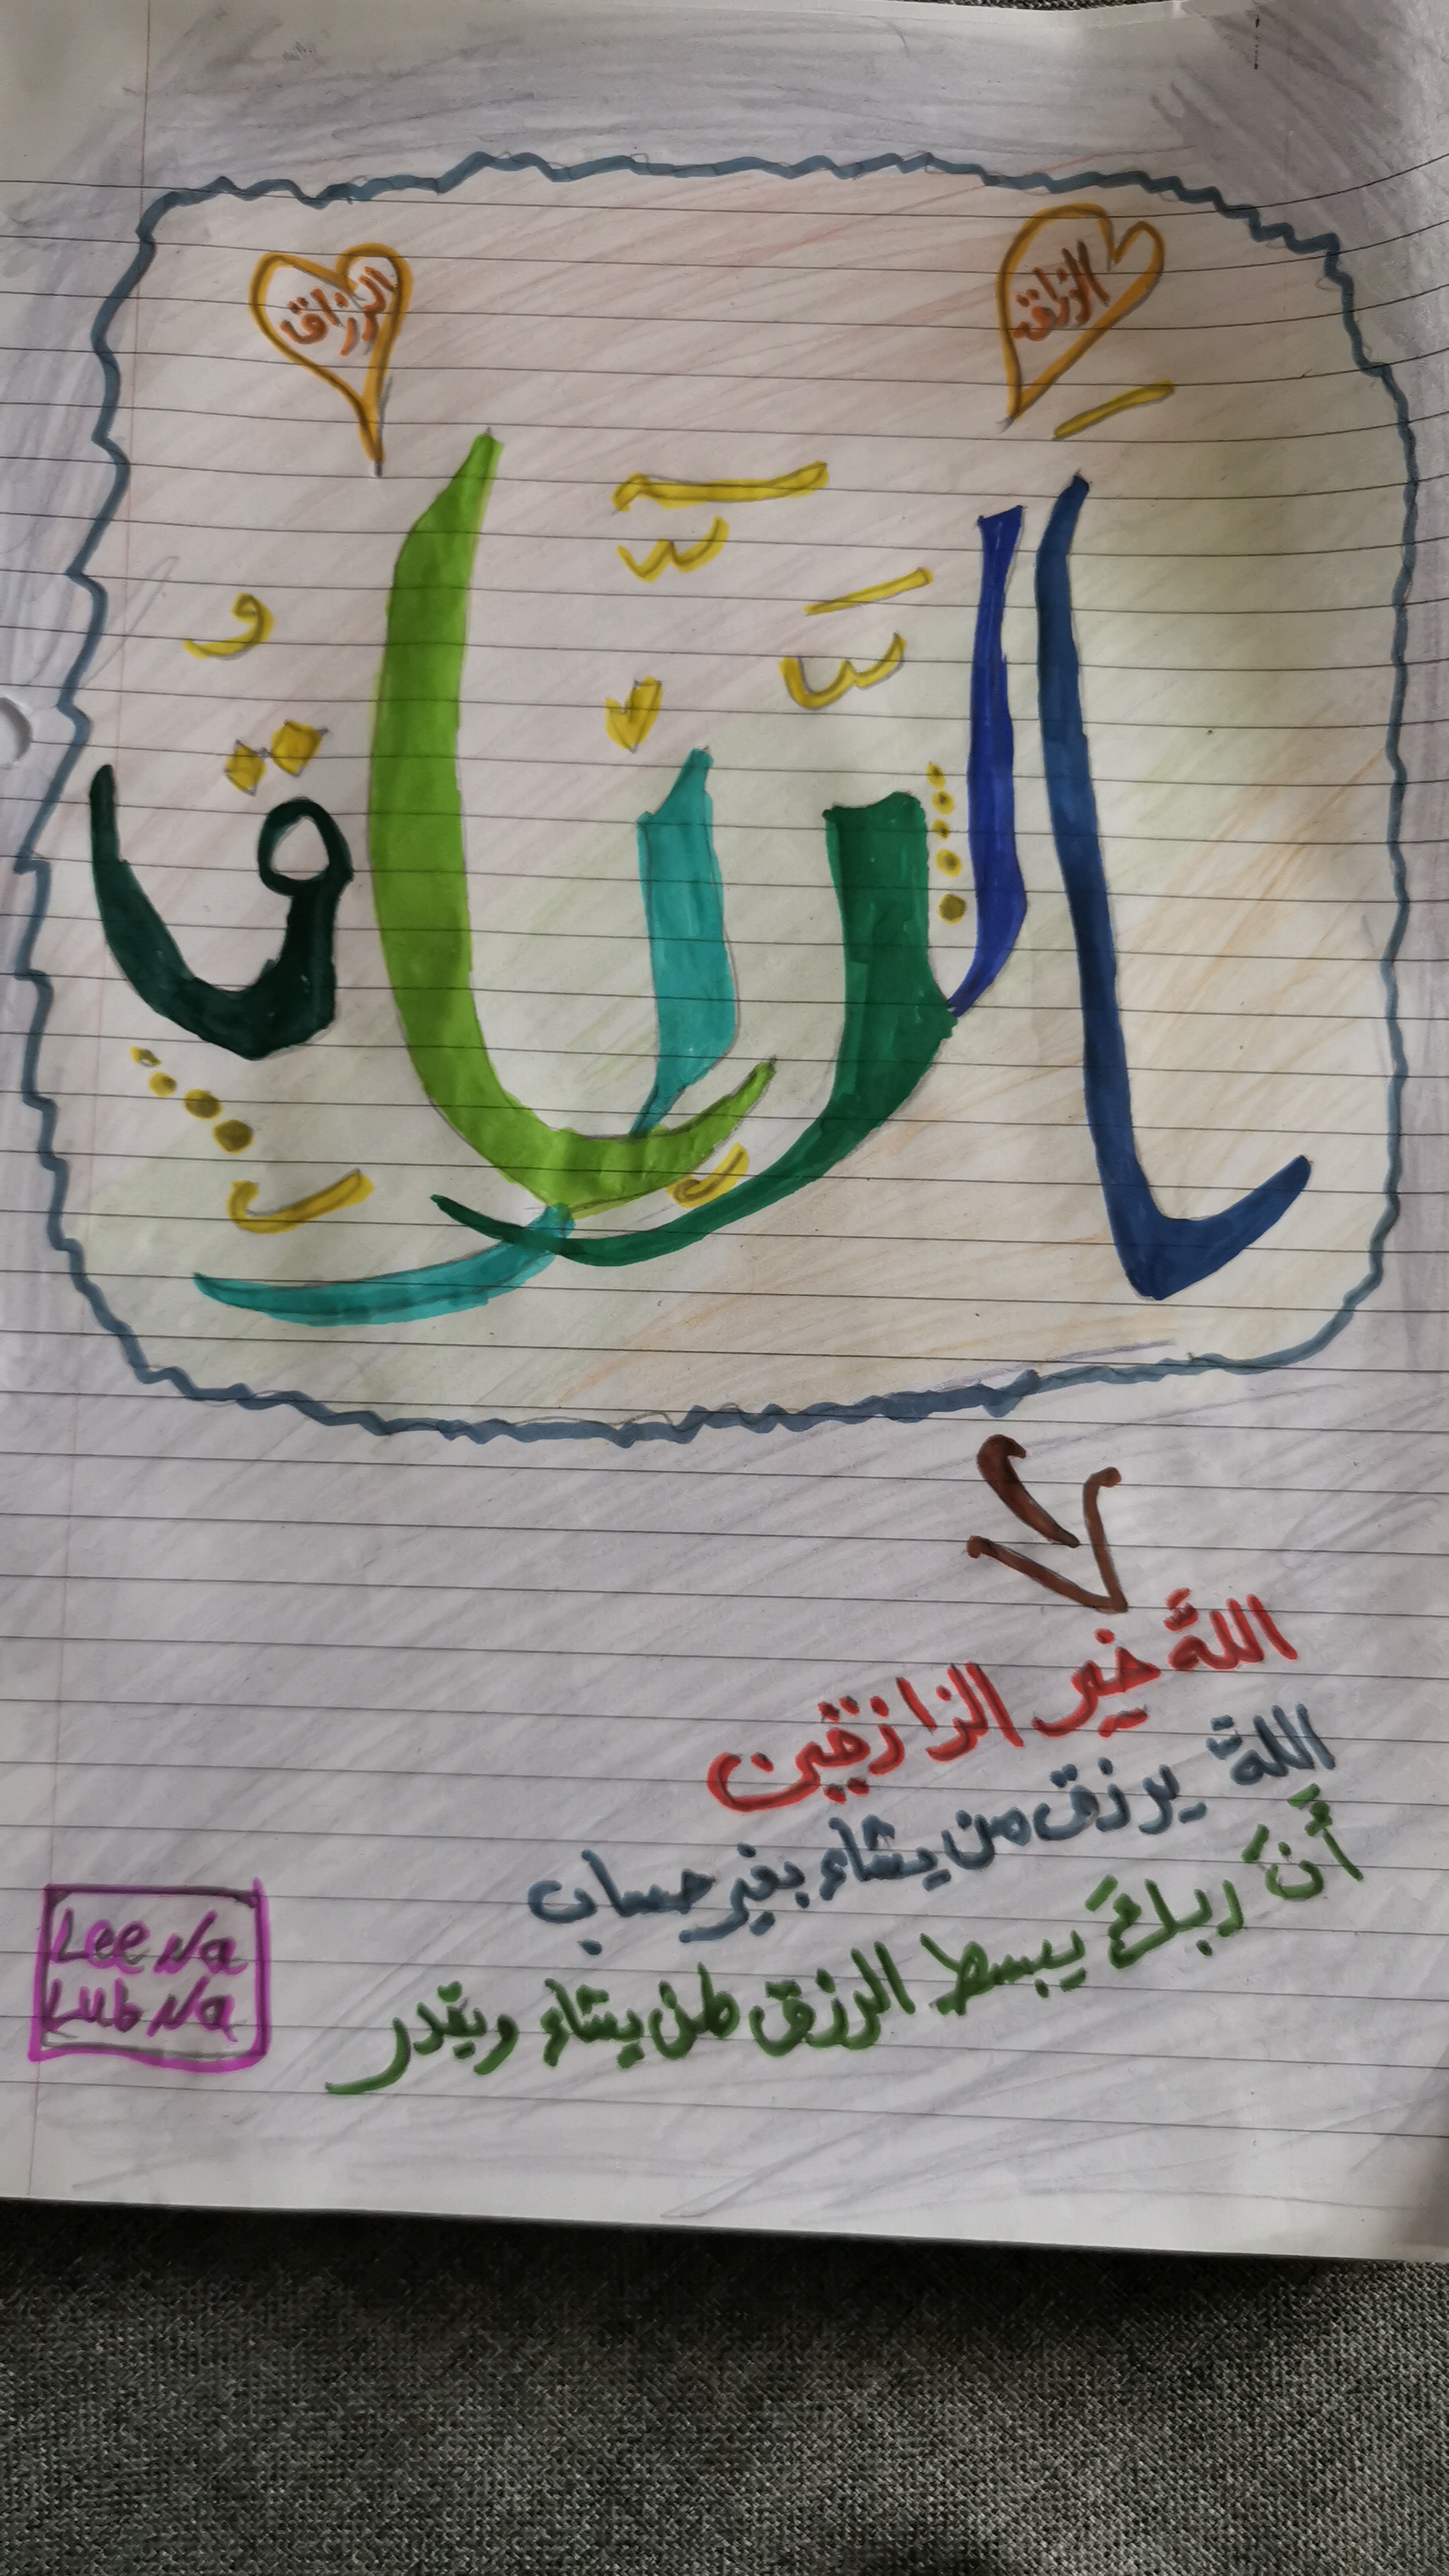 الرزاق
الرزاق
الرَّزَّاقُ
اللهَّ خير الرازقين
اللهَّ يرزق من يشاء بغير حساب
أنَّ ربكَ يبسط الرزق لمن يشاء ويقدر
LeeNa
LubNa